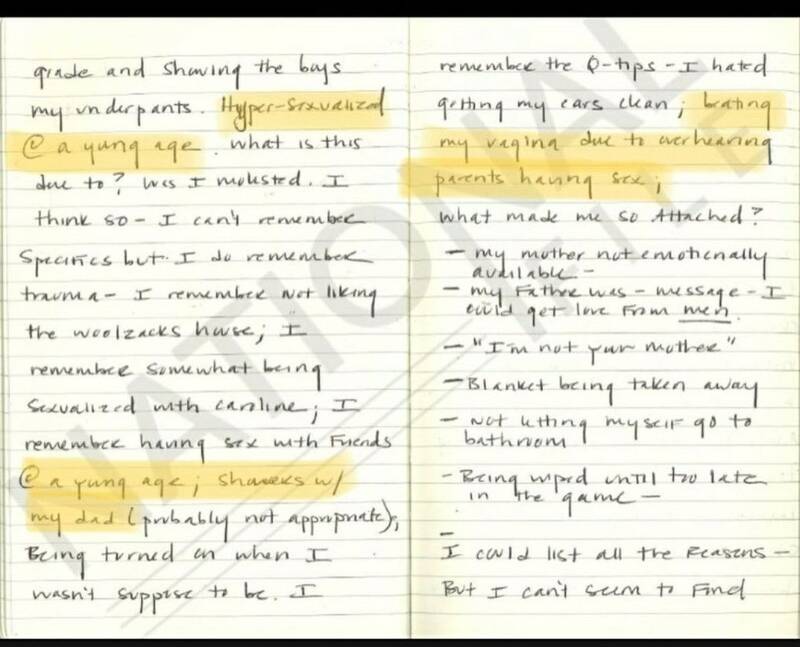 grade and showing the boys
my underpants. Hyper-sexualized
@ a yung age. what is this
due to? Was I molested. I
think so - I can't remember
specifics but I do remember
trauma - I remember not liking
the woolzacks house; I
remember somewhat being
sexualized with caroline; I
remember having sex with friends
@ a yung age; showers w/
my dad (probably not appropriate);
Being turned on when I
wasn't suppose to be. I
remember the Q-tips - I hated
getting my ears clean;
my vagina due to overhearing
parents having sex;
What made me so Attached?
- my mother not emotionally
available -
- my Father was - message - I
could get love from men.
- "I'm not your mother"
- Blanket being taken away
- Not letting myself go to
bathroom
- Being wiped until too late
in the game -
-
I could list all the Reasons -
But I can't seem to Find
NATIONAL
FILE